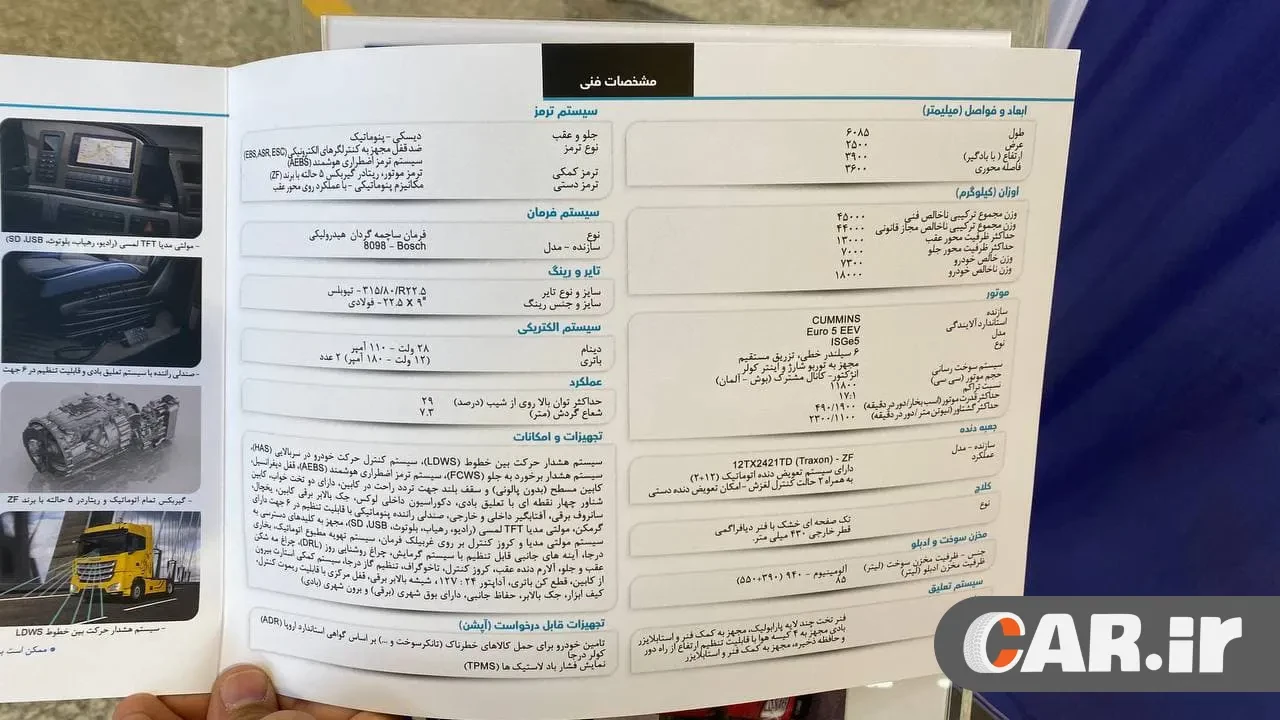 مشخصات فنی
ابعاد و فواصل (میلیمتر)
طول ۶۰۸۵
عرض ۲۵۰۰
ارتفاع (با بادگیر) ۳۹۰۰
فاصله محوری ۳۶۰۰
اوزان (کیلوگرم)
وزن مجموع ترکیبی ناخالص فنی ۴۵۰۰۰
وزن مجموع ترکیبی ناخالص مجاز قانونی ۴۴۰۰۰
حداکثر ظرفیت محور عقب ۱۳۰۰۰
حداکثر ظرفیت محور جلو ۷۰۰۰
وزن خالص خودرو ۷۳۰۰
وزن ناخالص خودرو ۱۸۰۰۰
موتور
سازنده CUMMINS
استاندارد آلایندگی Euro 5 EEV
مدل ISGe5
نوع ۶ سیلندر خطی، تزریق مستقیم
مجهز به توربو شارژ و اینتر کولر
سیستم سوخت رسانی انژکتور- کانال مشترک (بوش - آلمان)
حجم موتور (سی سی) ۱۱۸۰۰
نسبت تراکم ۱۷:۱
حداکثر قدرت موتور (اسب بخار/دور در دقیقه) ۴۹۰/۱۹۰۰
حداکثر گشتاور (نیوتن متر/دور در دقیقه) ۲۳۰۰/۱۱۰۰
جعبه دنده
سازنده - مدل 12TX2421TD (Traxon) - ZF
عملکرد دارای سیستم تعویض دنده اتوماتیک (۱۲+۲)
به همراه ۳ حالت کنترل لغزش -امکان تعویض دنده دستی
کلاچ
نوع تک صفحه ای خشک با فنر دیافراگمی
قطر خارجی ۴۳۰ میلی متر.
مخزن سوخت و ادبلو
جنس - ظرفیت مخزن سوخت (لیتر) آلومینیوم - ۹۴۰ (۳۹۰+۵۵۰)
ظرفیت مخزن ادبلو (لیتر) ۸۵
سیستم تعلیق
فنر تخت چند لایه پارابولیک، مجهز به کمک فنر و استابلایزر
بادی مجهز به ۴ کیسه هوا با قابلیت تنظیم ارتفاع از راه دور
و حافظه ذخیره، مجهز به کمک فنر و استابلایزر
سیستم ترمز
جلو و عقب دیسکی - پنوماتیک
نوع ترمز ضد قفل مجهز به کنترلگرهای الکترونیکی (EBS, ASR, ESC)
سیستم ترمز اضطراری هوشمند (AEBS)
ترمز کمکی ترمز موتور، ریتاردر گیربکس ۵ حالته با برند (ZF)
ترمز دستی مکانیزم پنوماتیکی - با عملکرد روی محور عقب
سیستم فرمان
نوع فرمان ساچمه گردان هیدرولیکی
سازنده - مدل 8098 – Bosch
تایر و رینگ
سایز و نوع تایر ۳۱۵/۸۰/R۲۲.۵- تیوبلس
سایز و جنس رینگ ۹" X ۲۲.۵- فولادی
سیستم الکتریکی
دینام ۲۸ ولت - ۱۱۰ آمپر
باتری (۱۲ ولت - ۱۸۰ آمپر) ۲ عدد
عملکرد
حداکثر توان بالا روی از شیب (درصد) ۲۹
شعاع گردش (متر) ۷.۳
تجهیزات و امکانات
سیستم هشدار حرکت بین خطوط (LDWS)، سیستم کنترل حرکت خودرو در سربالایی (HAS)،
سیستم هشدار برخورد به جلو (FCWS)، سیستم ترمز اضطراری هوشمند (AEBS)، قفل دیفرانسیل،
کابین مسطح (بدون پالونی) و سقف بلند جهت تردد راحت در کابین، دارای دو تخت خواب، کابین
شناور چهار نقطه ای با تعلیق بادی، دکوراسیون داخلی لوکس، جک بالابر برقی کابین، یخچال،
سانروف برقی، آفتابگیر داخلی و خارجی، صندلی راننده پنوماتیکی با قابلیت تنظیم در ۶ جهت دارای
گرمکن، مولتی مدیا TFT لمسی (رادیو، رهیاب، بلوتوث، SD ،USB)، مجهز به کلیدهای دسترسی به
سیستم مولتی مدیا و کروز کنترل بر روی غربیلک فرمان، سیستم تهویه مطبوع اتوماتیک، بخاری
درجا، آینه های جانبی قابل تنظیم با سیستم گرمایش، چراغ روشنایی روز (DRL)، چراغ مه شکن
عقب و جلو، آلارم دنده عقب، کروز کنترل، تاخوگراف، تنظیم گاز درجا، سیستم کمکی استارت بیرون
از کابین، قطع کن باتری، آداپتور ۲۴ : ۱۲۷، شیشه بالابر برقی، قفل مرکزی با قابلیت ریموت کنترل،
کیف ابزار، جک بالابر، حفاظ جانبی، دارای بوق شهری (برقی) و برون شهری (بادی)
تجهیزات قابل درخواست (آپشن)
تامین خودرو برای حمل کالاهای خطرناک (تانکر سوخت و ...) بر اساس گواهی استاندارد اروپا (ADR)
کولر درجا
نمایش فشار باد لاستیک ها (TPMS)
- مولتی مدیا TFT لمسی (رادیو، رهیاب، بلوتوث، SD ،USB)
- صندلی راننده با سیستم تعلیق بادی و قابلیت تنظیم در ۶ جهت
- گیربکس تمام اتوماتیک و ریتاردر ۵ حالته با برند ZF
- سیستم هشدار حرکت بین خطوط LDWS
ممکن است
CAR.ir